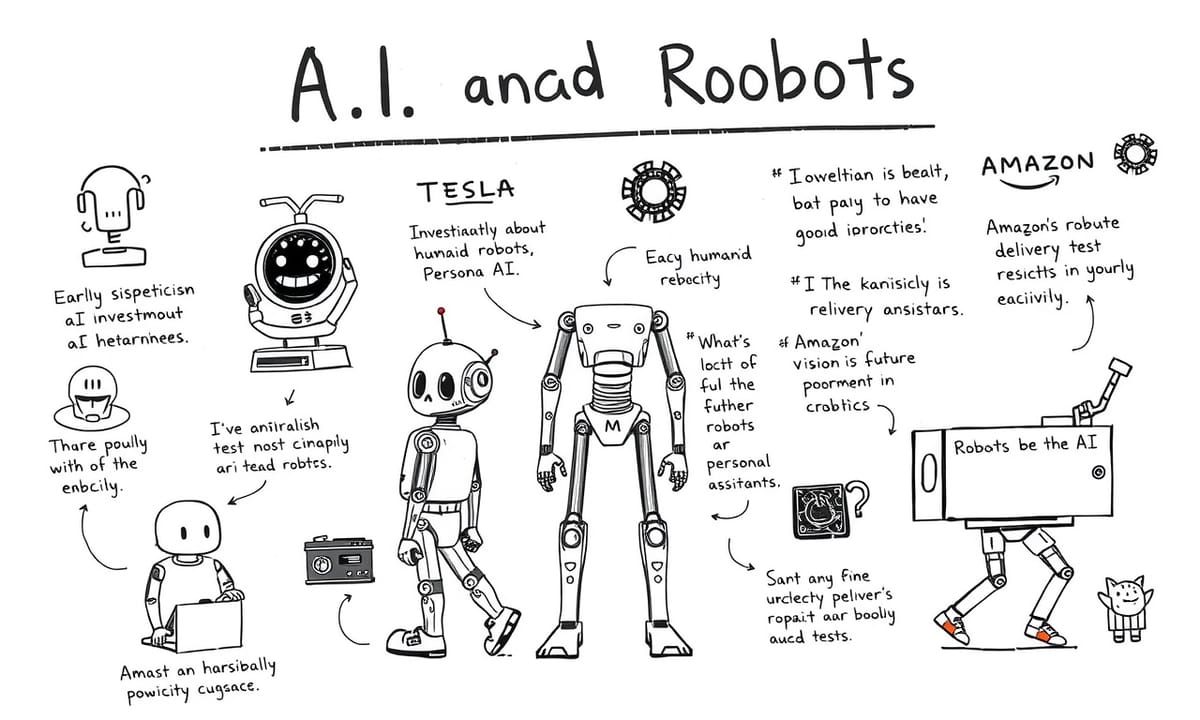 A.I. anad Roobots
TESLA
Investiaatly about
humaid robots,
Persona AI.
Eacy humanid
rebocity
" I oweltian is bealt,
bat paly to have
gooid iprorcties.'
" I The kanisicly is
relivery ansistars.
AMAZON
Amazon's robute
delivery test
resictts in yourly
eaciivily.
Earlly sispeticisn
aI investmout
aI hetarnhees.
Thare poully
with of the
enbcily.
I've aniiralish
test nost cinapily
ari tead robtcs.
" What's
loctt of
ful the
futher
robots
ar
personal
assitants.
" Amazon'
vision is future
poorment in
crobtics
M
Robots be the AI
Sant any fine
urclecty peliver's
ropait aar boolly
aucd tests.
Amast an harsibally
powicity cugsace.